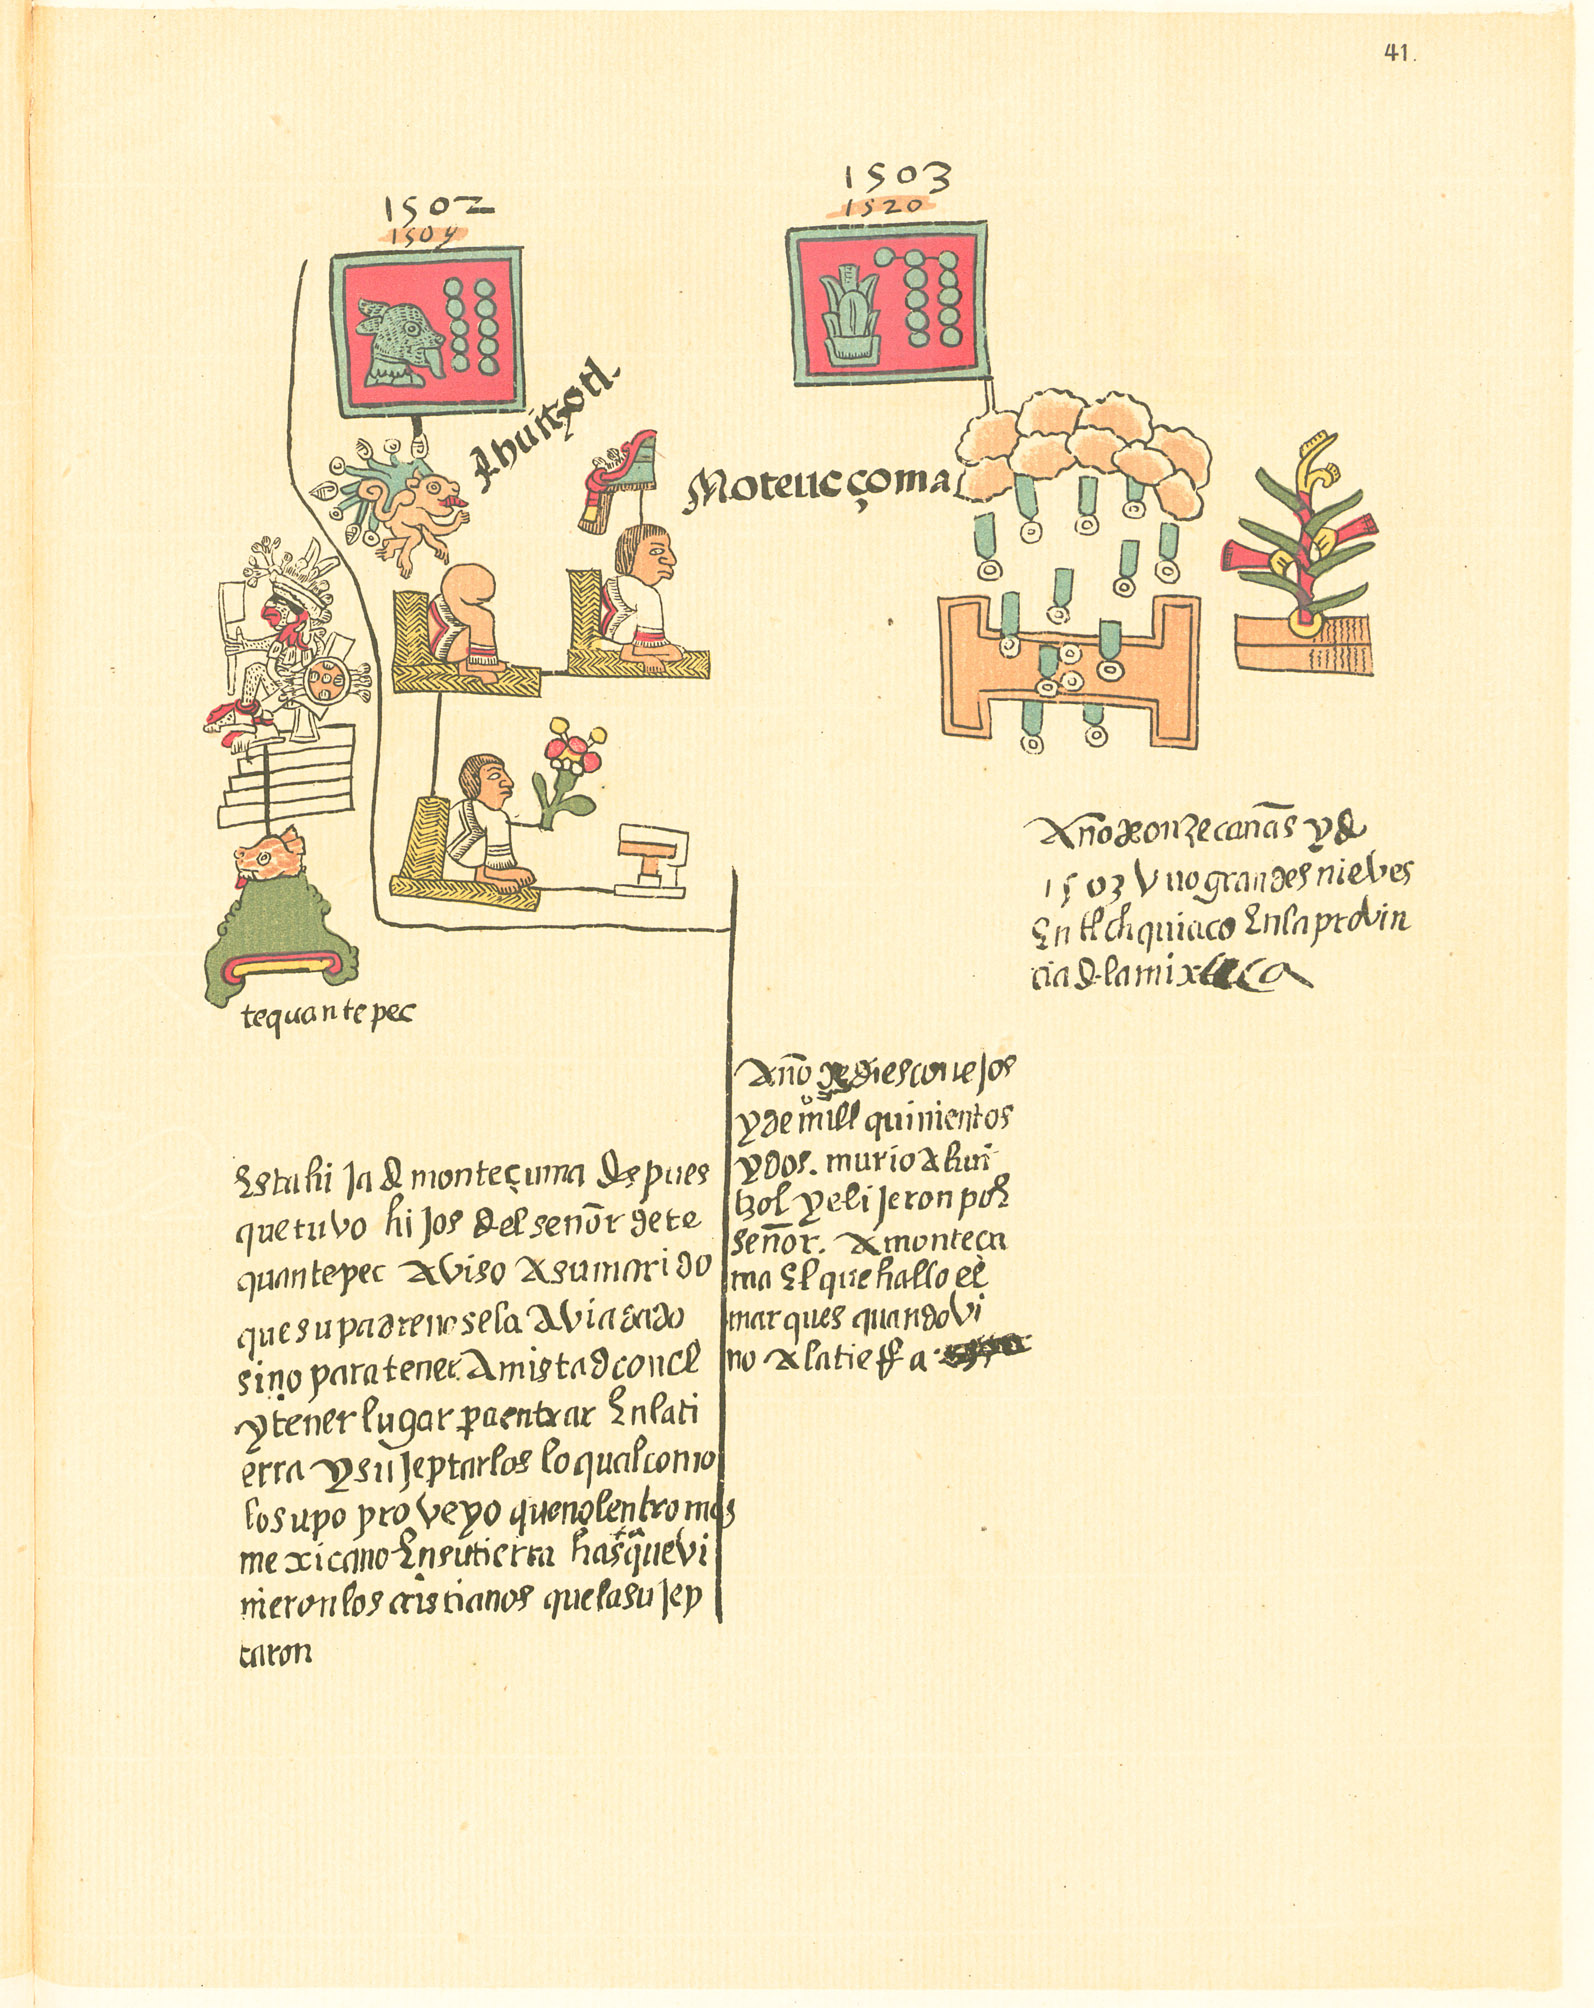 41.
1502
1504
1503
1520
Ahuitzotl.
Moteucçoma
tequantepec
Año de onze cañas y d
1503 Vuo grandes nieves
En tlchquiaco En la provin
cia d la mixteca
Año de dies conejos
y de mill quinientos
y dos. murio Ahui
tzol y elijeron por
señor. A monteçu
ma El que hallo el
marques quando vi
no A la tierra
Esta hija d monteçuma despues
que tuvo hijos del señor de te
quantepec Aviso A su marido
que su padre no se la Avia dado
sino para tener Amistad con el
y tener lugar pa entrar En la ti
erra y sujeptarlos lo qual como
lo supo proveyo que no entro mas
mexicano En su tierra hasta que vi
nieron los cristianos que la sujep
taron